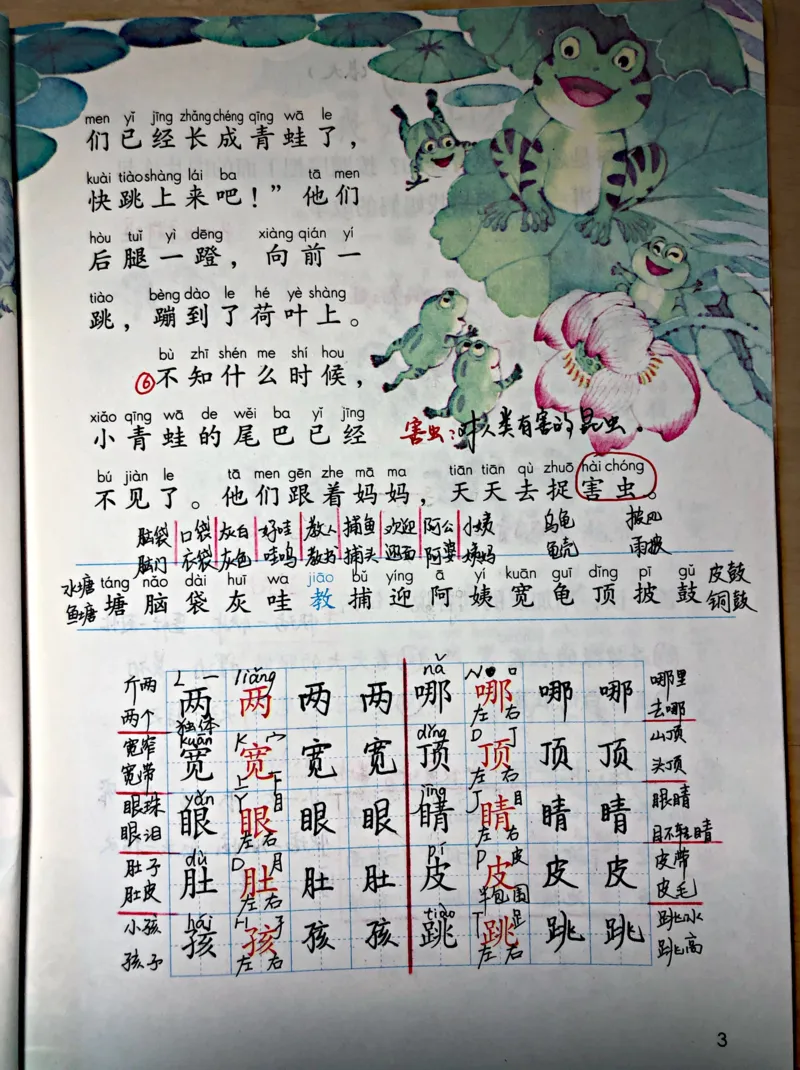 men yǐ jīng zhǎng chéng qīng wā le
们已经长成青蛙了，
kuài tiào shàng lái ba tā men
快跳上来吧！”他们
hòu tuǐ yì dēng xiàng qián yí
后腿一蹬，向前一
tiào bèng dào le hé yè shàng
跳，蹦到了荷叶上。
bù zhī shén me shí hou
⑥不知什么时候，
xiǎo qīng wā de wěi ba yǐ jīng
小青蛙的尾巴已经
害虫：对人类有害的昆虫。
bú jiàn le tā men gēn zhe mā ma tiān tiān qù zhuō hài chóng
不见了。他们跟着妈妈，天天去捉害虫。
脑袋 口袋 灰白 好哇 教人 捕鱼 欢迎 阿公 小姨 乌龟 披风
脑门 衣袋 灰色 哇呜 教书 捕头 迎面 阿婆 姨妈 龟壳 雨披
水塘 táng nǎo dài huī wa jiāo bǔ yíng ā yí kuān guī dǐng pī gǔ 皮鼓
鱼塘 塘脑袋灰哇教捕迎阿姨宽龟顶披鼓 铜鼓
liǎng nǎ
斤两 L 一 N 口 哪里
两个 两两两两 哪哪哪哪 去哪
独体 左右
kuān K 宀 dǐng D 丁
宽窄 宽宽宽宽 顶顶顶顶 山顶
宽带 上下 左右 头顶
yǎn Y 目 jīng J 目
眼珠 眼眼眼眼 睛睛睛睛 眼睛
眼泪 左右 左右 目不转睛
dù D 月 pí P 皮
肚子 肚肚肚肚 皮皮皮皮 皮带
肚皮 左右 半包围 皮毛
hái H 子 tiào T 足
小孩 孩孩孩孩 跳跳跳跳 跳水
孩子 左右 左右 跳高
3